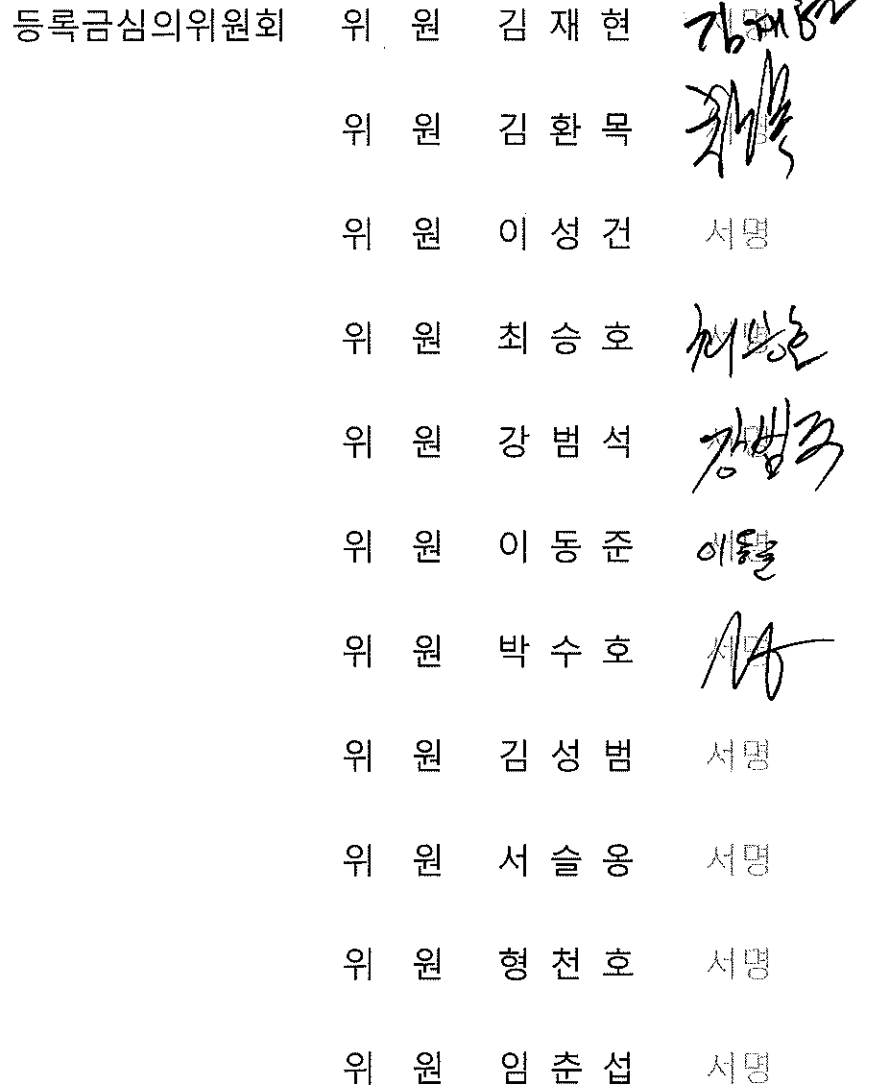 등록금심의위원회 위 원 김 재 현 서명 김재현
위 원 김 환 목 서명
위 원 이 성 건 서명
위 원 최 승 호 서명 최승호
위 원 강 범 석 서명 강범석
위 원 이 동 준 서명 이동준
위 원 박 수 호 서명
위 원 김 성 범 서명
위 원 서 슬 옹 서명
위 원 형 천 호 서명
위 원 임 춘 섭 서명